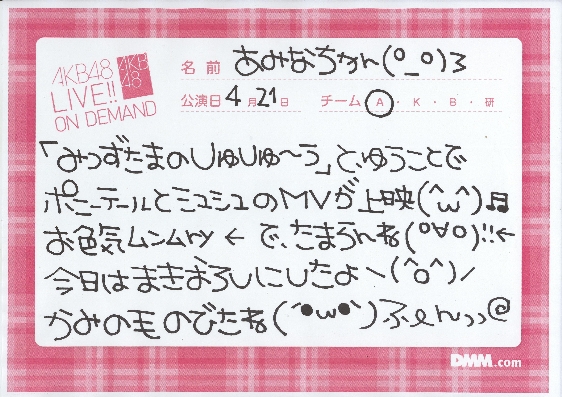 AKB48
LIVE!!
ON DEMAND
AKB
48
名前 あみなちゃん(°_°)3
公演日 4月21日 チーム A・K・B・研
「みずたまのしゅしゅ〜う」と、ゆうことで
ポニーテールとシュシュのMVが上映(^ω^)♬
お色気ムンムン ← で、たまらんね(°∀°)!!←
今日はまきおろしにしたよ\(^o^)/
かみの毛のびたね(´●ω●`)ふぇんっっ@
DMM.com